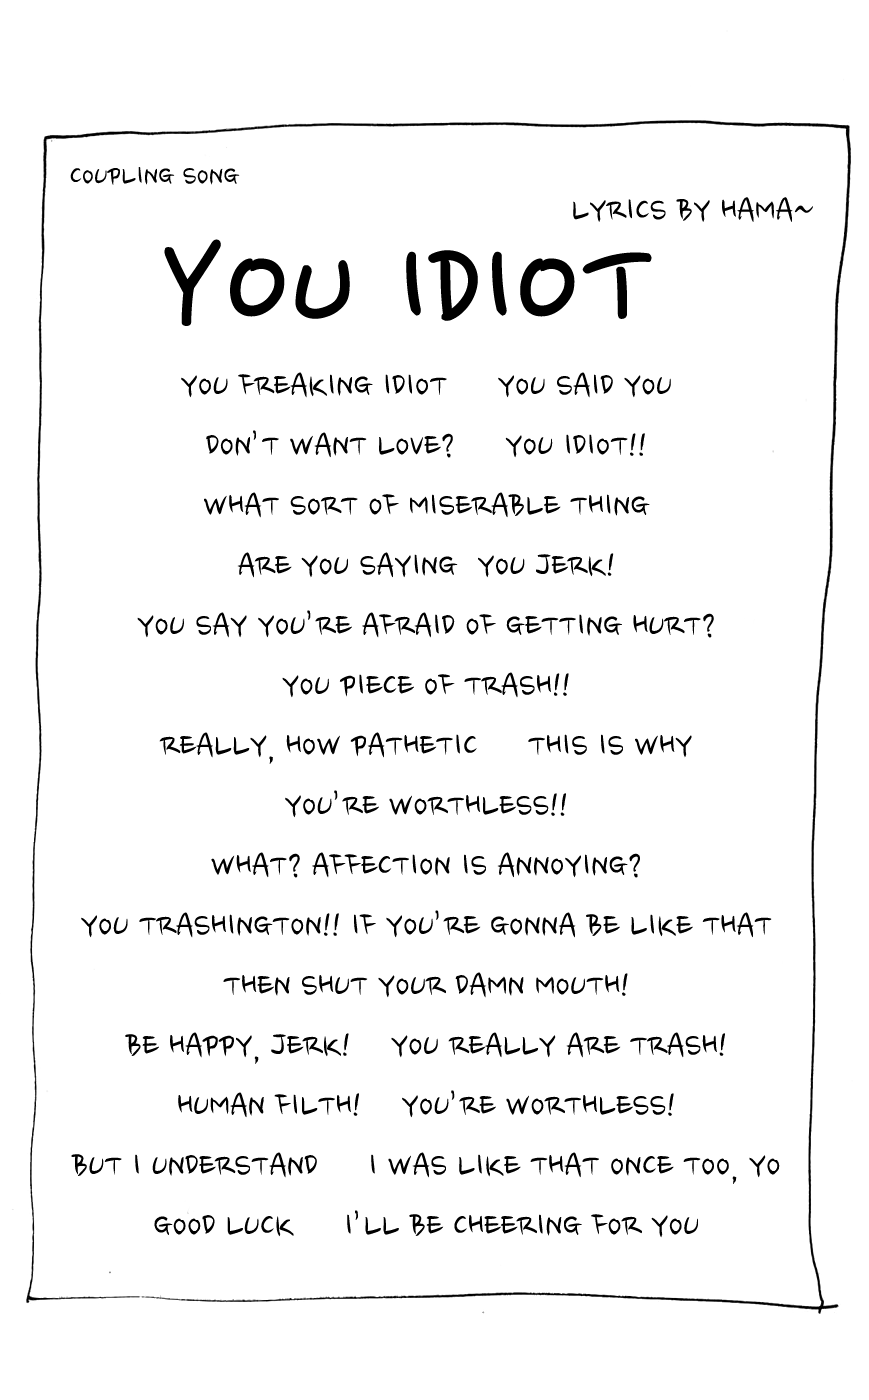 COUPLING SONG
LYRICS BY HAMA~
YOU IDIOT
YOU FREAKING IDIOT YOU SAID YOU
DON'T WANT LOVE? YOU IDIOT!!
WHAT SORT OF MISERABLE THING
ARE YOU SAYING YOU JERK!
YOU SAY YOU'RE AFRAID OF GETTING HURT?
YOU PIECE OF TRASH!!
REALLY, HOW PATHETIC THIS IS WHY
YOU'RE WORTHLESS!!
WHAT? AFFECTION IS ANNOYING?
YOU TRASHINGTON!! IF YOU'RE GONNA BE LIKE THAT
THEN SHUT YOUR DAMN MOUTH!
BE HAPPY, JERK! YOU REALLY ARE TRASH!
HUMAN FILTH! YOU'RE WORTHLESS!
BUT I UNDERSTAND I WAS LIKE THAT ONCE TOO, YO
GOOD LUCK I'LL BE CHEERING FOR YOU